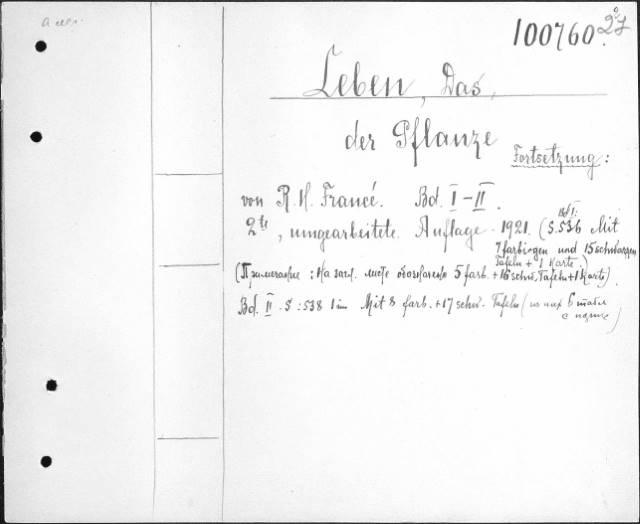 100760.
Leben, Das,
der Pflanze
Fortsetzung:
von R. H. Francé. Bd. I–II.
2te, umgearbeitete Auflage. 1921. (Bd I: S. 536 Mit
7 farbigen und 15 schwarzen
Tafeln + 1 Karte.)
(Примечание: На загл. листе обозначено 5 farb. + 16 schw. Tafeln + 1 Karte)
Bd. II. S. 538 Mit 8 farb. + 17 schw. Tafeln (из них